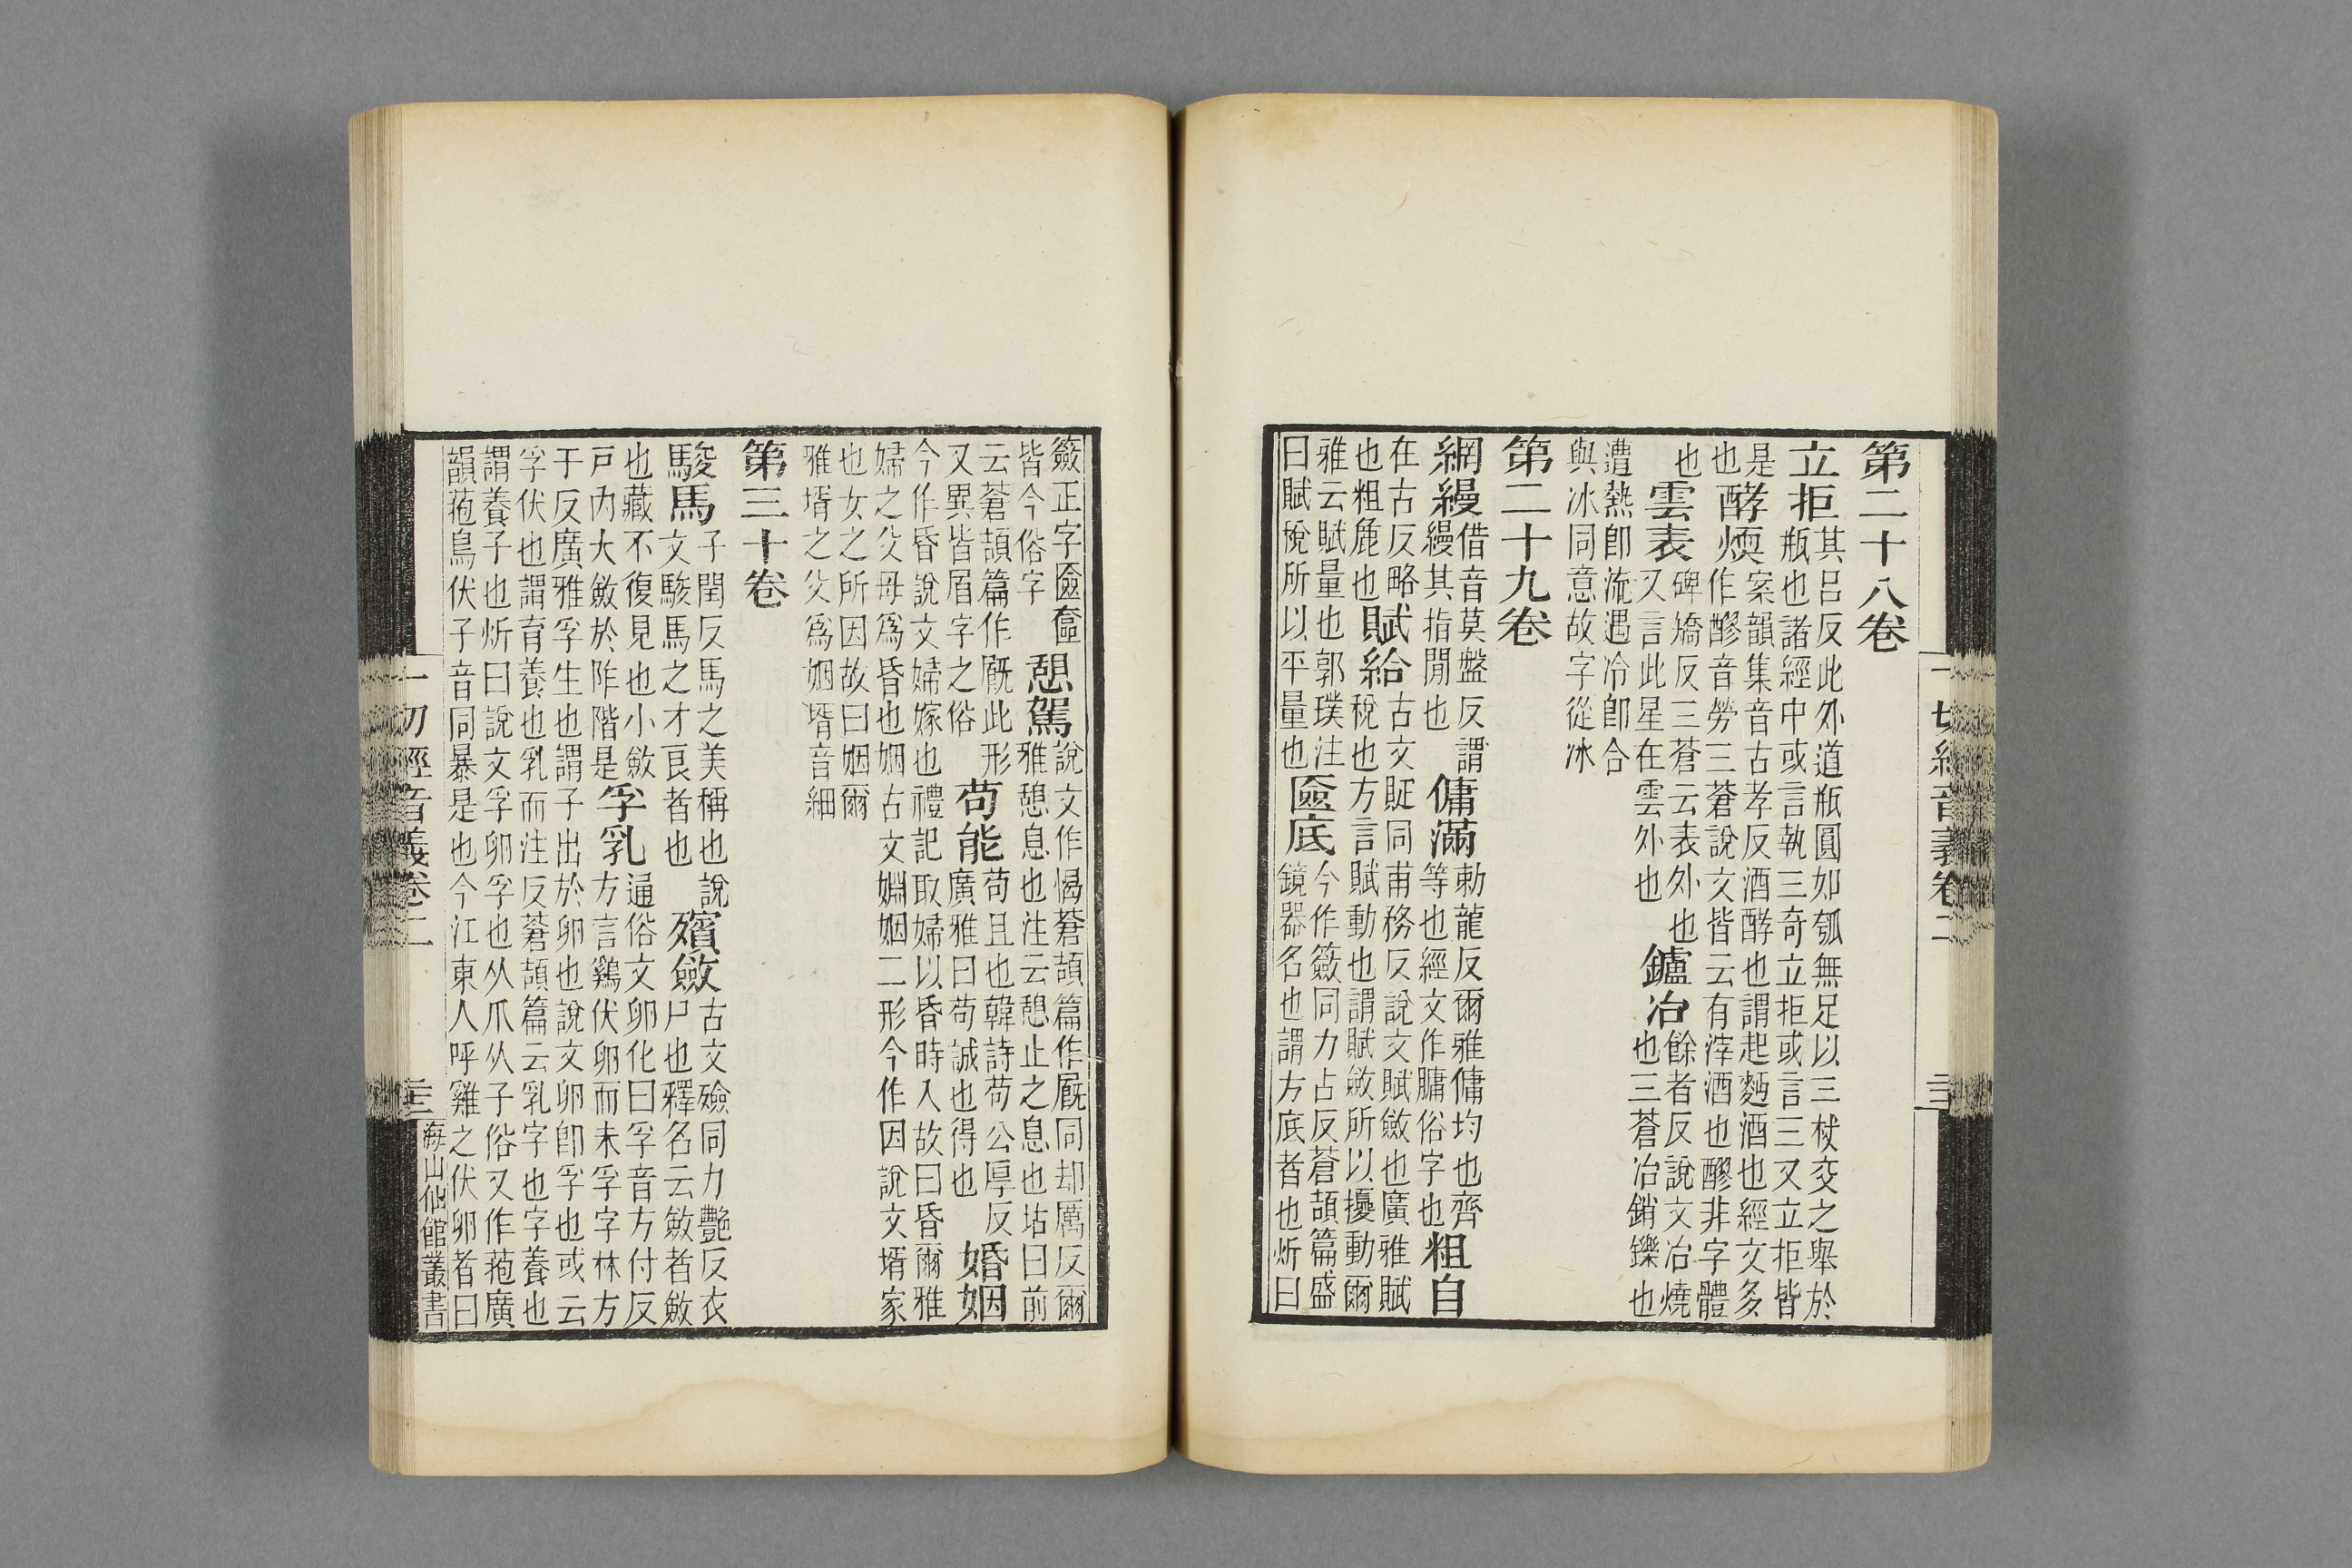 一切經音義卷二
第二十八卷
立拒其呂反此外道瓶圓如瓠無足以三杖交之舉於
瓶也諸經中或言執三奇立拒或言三叉立拒皆
是
也
酵煗案韻集音古孝反酒酵也謂起麪酒也經文多
作醪音勞三蒼說文皆云有滓酒也醪非字體
也
雲表碑嬌反三蒼云表外也
又言此星在雲外也
鑪冶餘者反說文冶燒
也三蒼冶銷鑠也
遭熱卽流遇冷卽合
與冰同意故字從冰
第二十九卷
網縵借音莫盤反謂
縵其指間也
傭滿勅龍反爾雅傭均也齊
等也經文作𦟛俗字也
粗自
在古反略
也粗麁也
賦給古文䝷同甫務反說文賦斂也廣雅賦
稅也方言賦動也謂賦斂所以擾動爾
雅云賦量也郭璞注
曰賦稅所以平量也
匳底今作籢同力占反蒼頡篇盛
鏡器名也謂方底者也炘曰
籢正字匳奩
皆今俗字
憩駕說文作愒蒼頡篇作㕂同却厲反爾
雅憩息也注云憩止之息也坫曰前
云蒼頡篇作㕂此形
又異皆眉字之俗
苟能苟且也韓詩苟公厚反
廣雅曰苟誠也得也
婚姻
今作昏說文婦嫁也禮記取婦以昏時入故曰昏爾雅
婦之父母爲昏也姻古文婣姻二形今作因說文壻家
也女之所因故曰姻爾
雅壻之父爲姻壻音細
第三十卷
駿馬子閏反馬之美稱也說
文駿馬之才良者也
殯斂古文殮同力艷反衣
尸也釋名云斂者斂
也藏不復見也小斂
戶內大斂於阼階是
孚乳通俗文卵化曰孚音方付反
方言鷄伏卵而未孚字林方
于反廣雅孚生也謂子出於卵也說文卵卽孚也或云
孚伏也謂育養也乳而注反蒼頡篇云乳字也字養也
謂養子也炘曰說文孚卵孚也从爪从子俗又作菢廣
韻菢鳥伏子音同暴是也今江東人呼雞之伏卵者曰
一切經音義卷二
海山仙館叢書